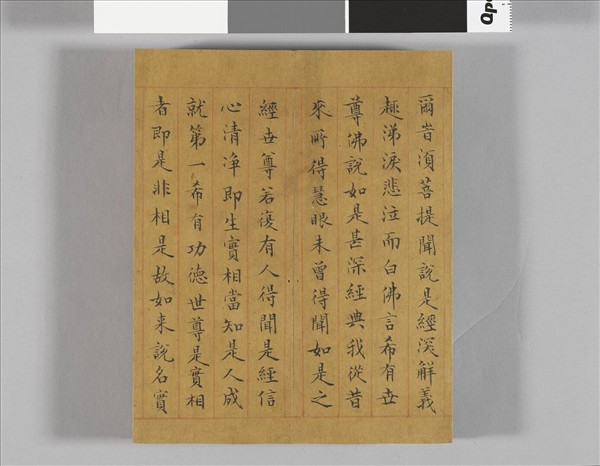 爾旹湏菩提聞說是經深解義
趣涕淚悲泣而白佛言希有世
尊佛說如是甚深經典我從昔
來所得慧眼未曾得聞如是之
經世尊若復有人得聞是經信
心清净即生實相當知是人成
就第一希有功德世尊是實相
者即是非相是故如来說名實